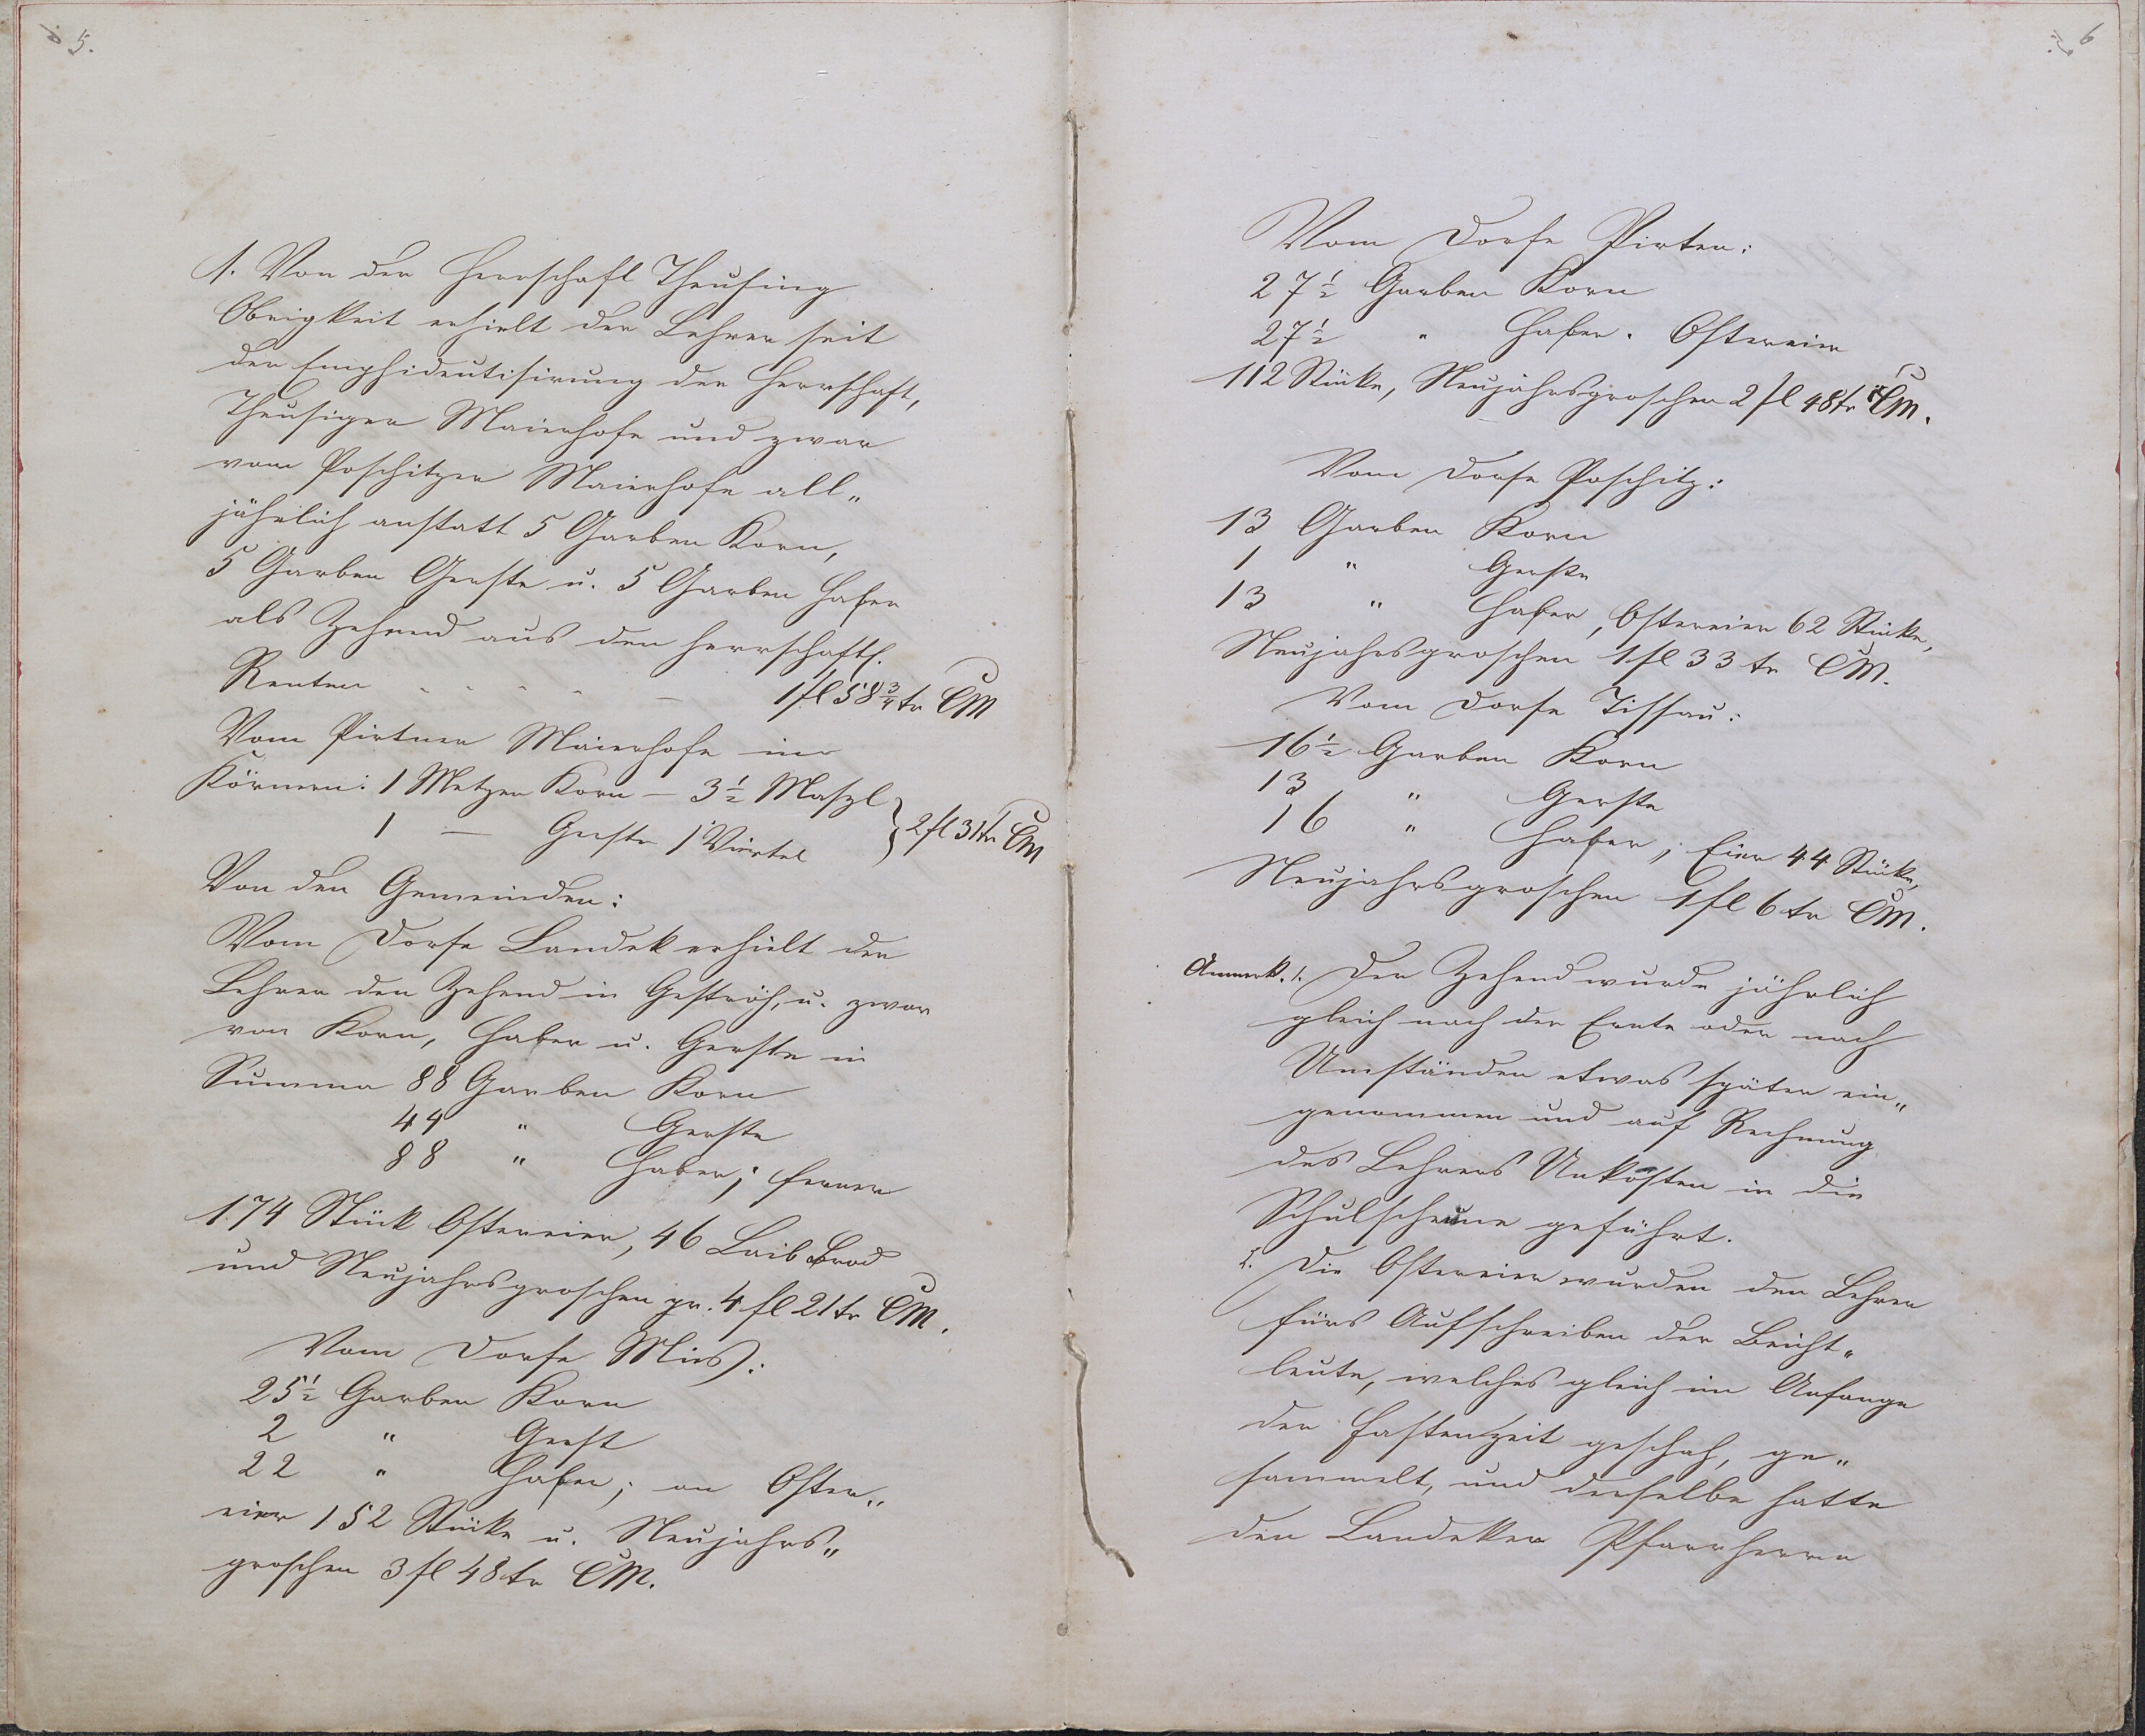 5.
1. Von der Herrschaft Theusing
Obrigkeit erhielt der Lehrer seit
der Emphideutisirung der Herrschaft,
Theusiger Maierhofe und zwar
vom Poschitzer Maierhofe all„
jährlich anstatt 5 Garben Korn,
5 Garben Gerste u. 5 Garben Haber
als Zehend aus den herrschaftl.
Renten - - - - - 1 fl 58 3/4 kr CM
Vom Pirtner Maierhofe in
Körnern: 1 Metzen Korn – 3 1/2 Maßl
1 — Gerste 1 Viertel } 2 fl 31 kr CM
Von den Gemeinden:
Vom Dorfe Landek erhielt der
Lehrer den Zehend in Geströh, u. zwar
von Korn, Haber u. Gerste in
Summa 88 Garben Korn
44 " Gerste
88 " Haber; ferner
174 Stück Ostereier, 46 Laib Brod
und Neujahrsgroschen pr. 4 fl 21 kr CM.
Vom Dorfe Mies:
25 1/2 Garben Korn
2 " Gerst
22 " Haber; an Oster„
eier 152 Stücke u. Neujahrs„
groschen 3 fl 48 kr CM.
6
Vom Dorfe Pirten:
27 1/2 Garben Korn
27 1/2 " Haber. Ostereier
112 Stücke, Neujahrsgroschen 2 fl 48 kr CM.
Vom Dorfe Poschitz:
13 Garben Korn
1 " Gerste
13 " Haber, Ostereier 62 Stücke,
Neujahrsgroschen 1 fl 33 kr CM.
Vom Dorfe Tissau:
16 1/2 Garben Korn
13 " Gerste
16 " Haber; Eier 44 Stücke,
Neujahrsgroschen 1 fl 6 kr CM.
Anmerk. 1. Der Zehend wurde jährlich
gleich nach der Ernte oder nach
Umständen etwas später ein„
genommen und auf Rechnung
des Lehrers Unkosten in die
Schulscheune geführt.
2. Die Ostereier wurden den Lehrer
fürs Aufschreiben der Beicht„
leute, welches gleich im Anfange
der Fastenzeit geschah, ge„
sammelt, und derselbe hatte
den Landeker Pfarrherrn